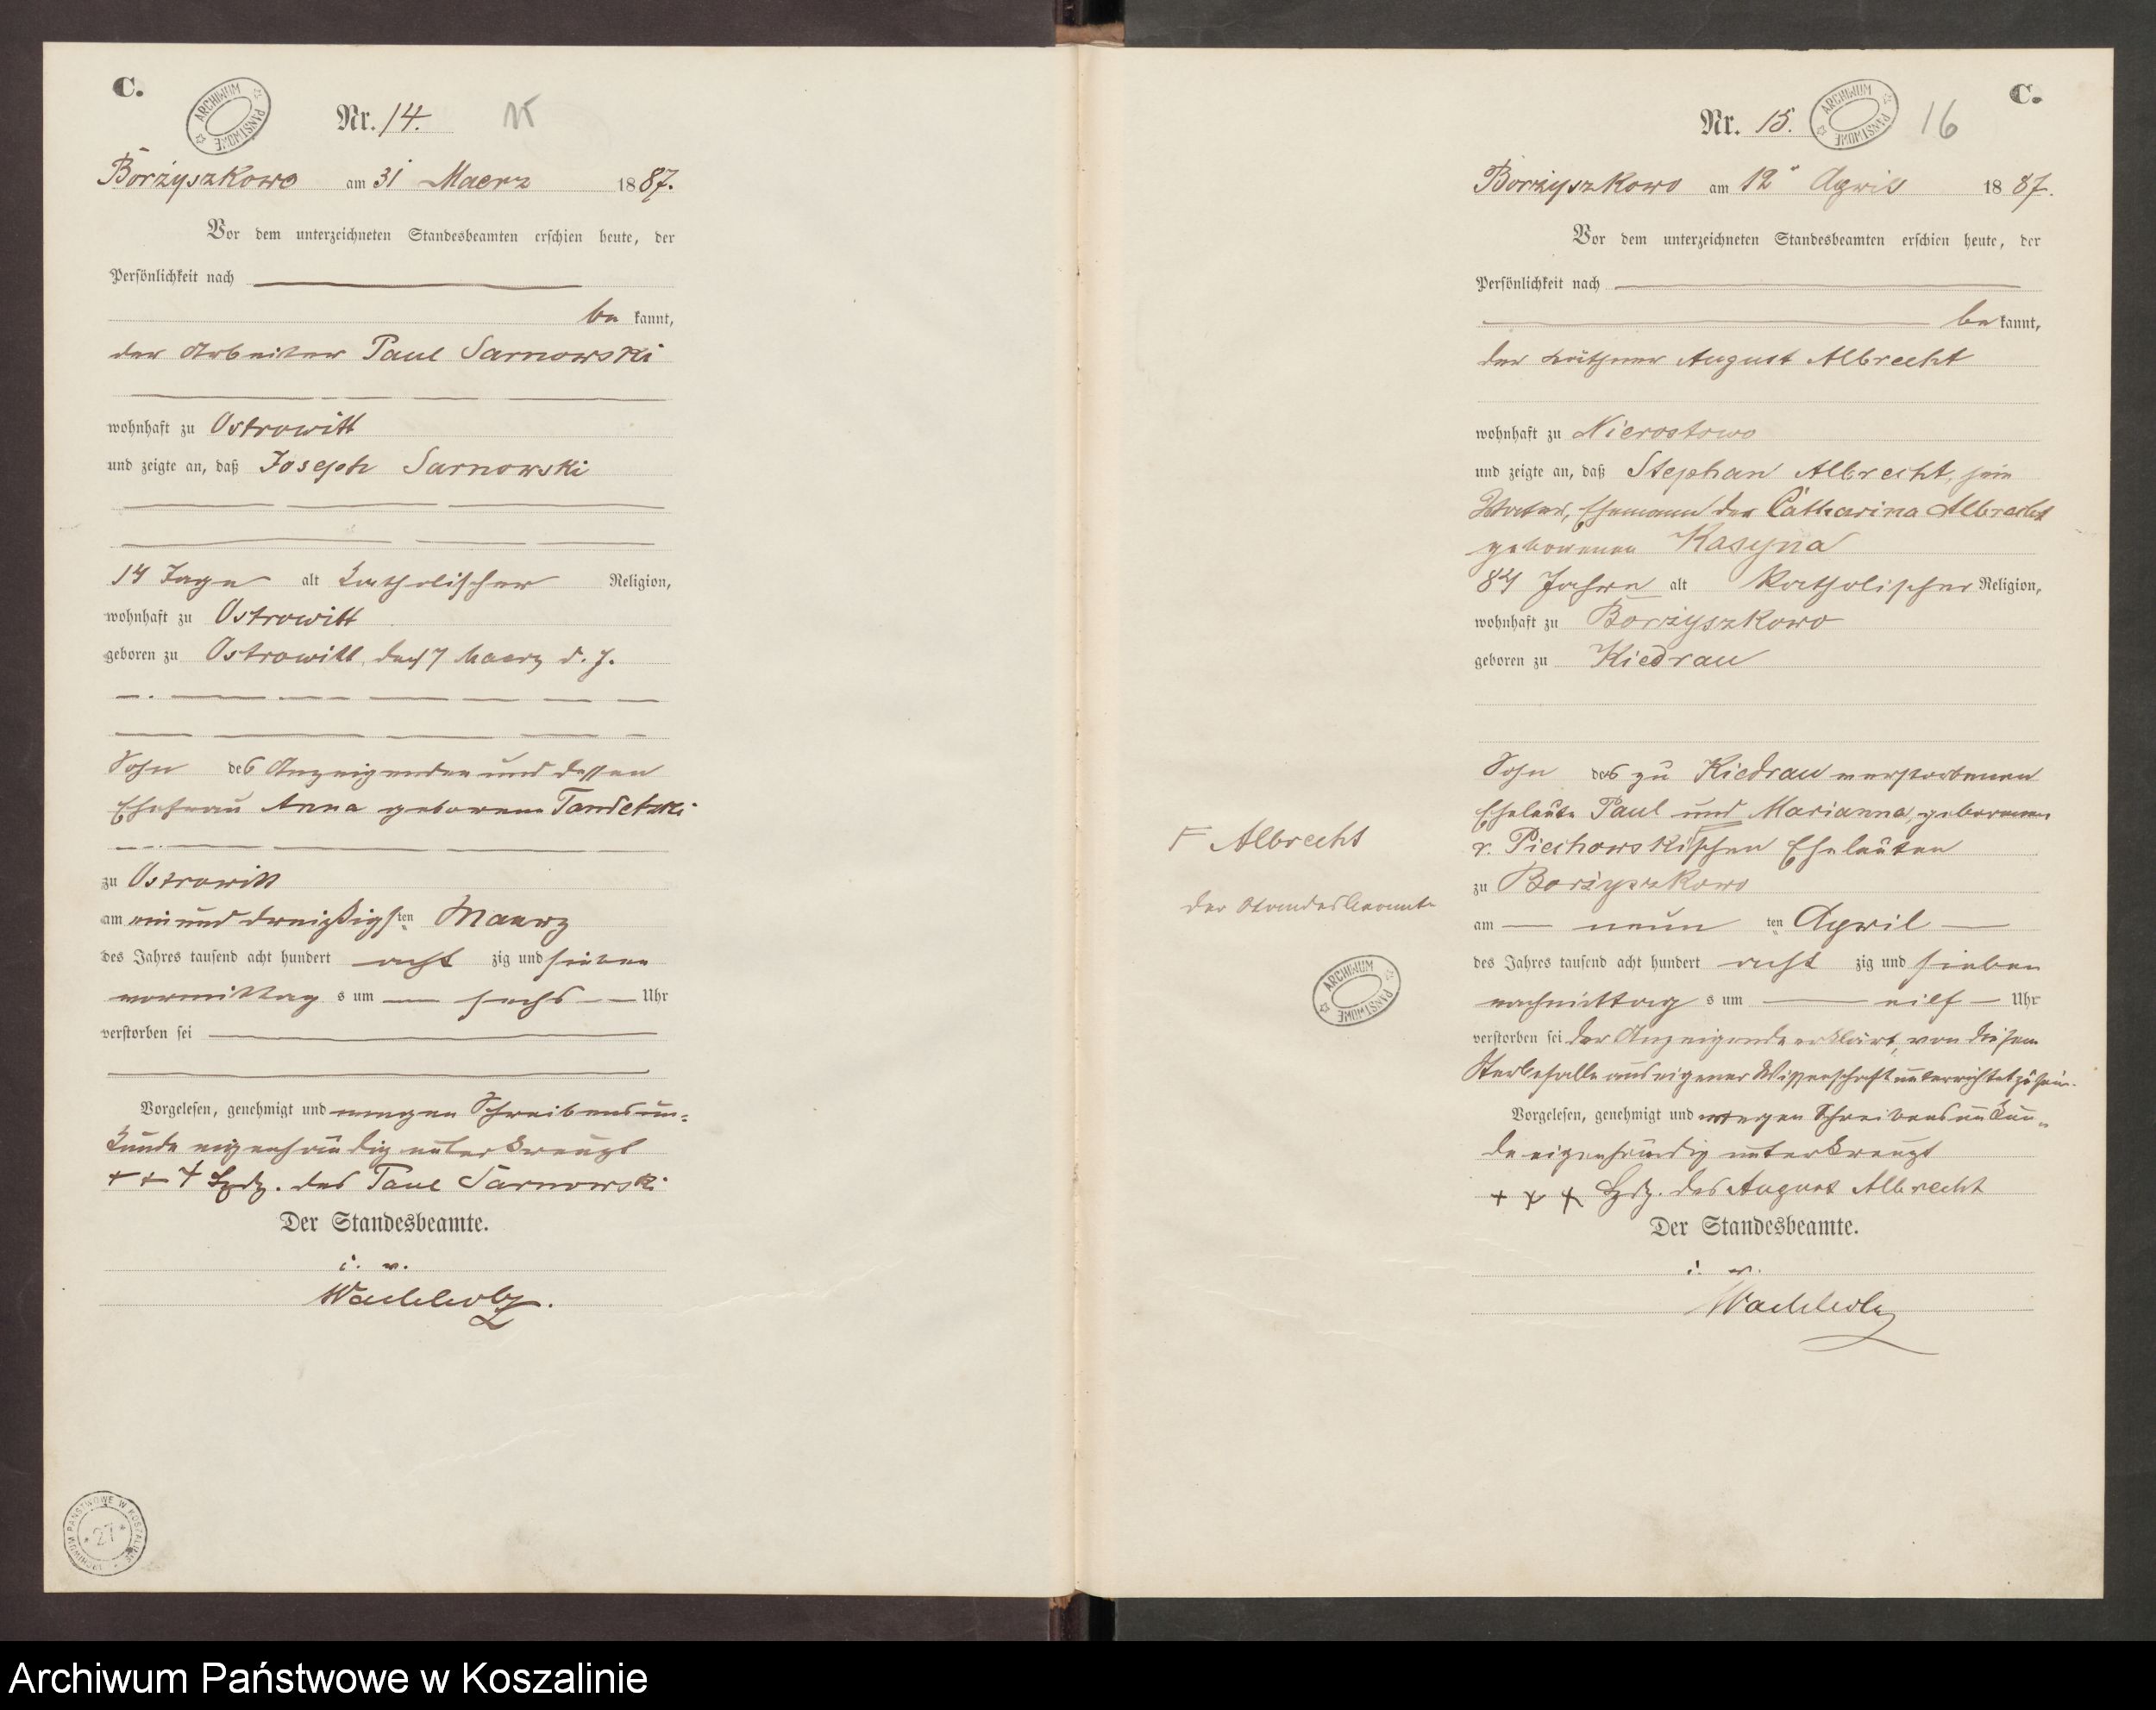 C.
ARCHIWUM PAŃSTWOWE
Nr. 14.
15
Borzyszkowo am 31 Maerz 1887.
Vor dem unterzeichneten Standesbeamten erschien heute, der
Persönlichkeit nach
be kannt,
der Arbeiter Paul Sarnowski
wohnhaft zu Ostrowitt
und zeigte an, daß Joseph Sarnowski
14 Tage alt katholischer Religion,
wohnhaft zu Ostrowitt
geboren zu Ostrowitt, den 17 Maerz d. J.
Sohn des Anzeigenden und dessen
Ehefrau Anna geborene Tandetzki
zu Ostrowitt
am ein und dreißigsten Maerz
des Jahres tausend acht hundert acht zig und sieben
vormittag s um sechs Uhr
verstorben sei
Vorgelesen, genehmigt und wegen Schreibensun-
kunde eigenhändig unterkreuzt
+ + + Hdz. des Paul Sarnowski
Der Standesbeamte.
i. v.
Wachholz.
ARCHIWUM PAŃSTWOWE W KOSZALINIE
* 27 *
C.
Nr. 15.
ARCHIWUM PAŃSTWOWE
16
Borzyszkowo am 12" April 1887.
Vor dem unterzeichneten Standesbeamten erschien heute, der
Persönlichkeit nach
be kannt,
der Käthner August Albrecht
wohnhaft zu Nierostowo
und zeigte an, daß Stephan Albrecht, sein
Vater, Ehemann der Catharina Albrecht
geborenen Kasyna
84 Jahre alt katholischer Religion,
wohnhaft zu Borzyszkowo
geboren zu Kiedrau
Sohn des zu Kiedrau verstorbenen
Eheleute Paul und Marianna, geborenen
v. Piechowskischen Eheleuten
F Albrecht
zu Borzyszkowo
Der Standesbeamte
am neun ten April
des Jahres tausend acht hundert acht zig und sieben
nachmittag s um eilf Uhr
ARCHIWUM PAŃSTWOWE
verstorben sei der Anzeigende erklärt, von diesem
Sterbefalle aus eigener Wissenschaft unterrichtet zu sein.
Vorgelesen, genehmigt und wegen Schreibensunkun-
de eigenhändig unterkreuzt
+ + + Hdz. des August Albrecht
Der Standesbeamte.
i. v.
Wachholz
Archiwum Państwowe w Koszalinie